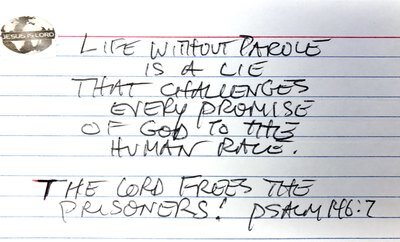 JESUS IS LORD
LIFE WITHOUT PAROLE
IS A LIE
THAT CHALLENGES
EVERY PROMISE
OF GOD TO THE
HUMAN RACE.
THE LORD FREES THE
PRISONERS! PSALM 146:7